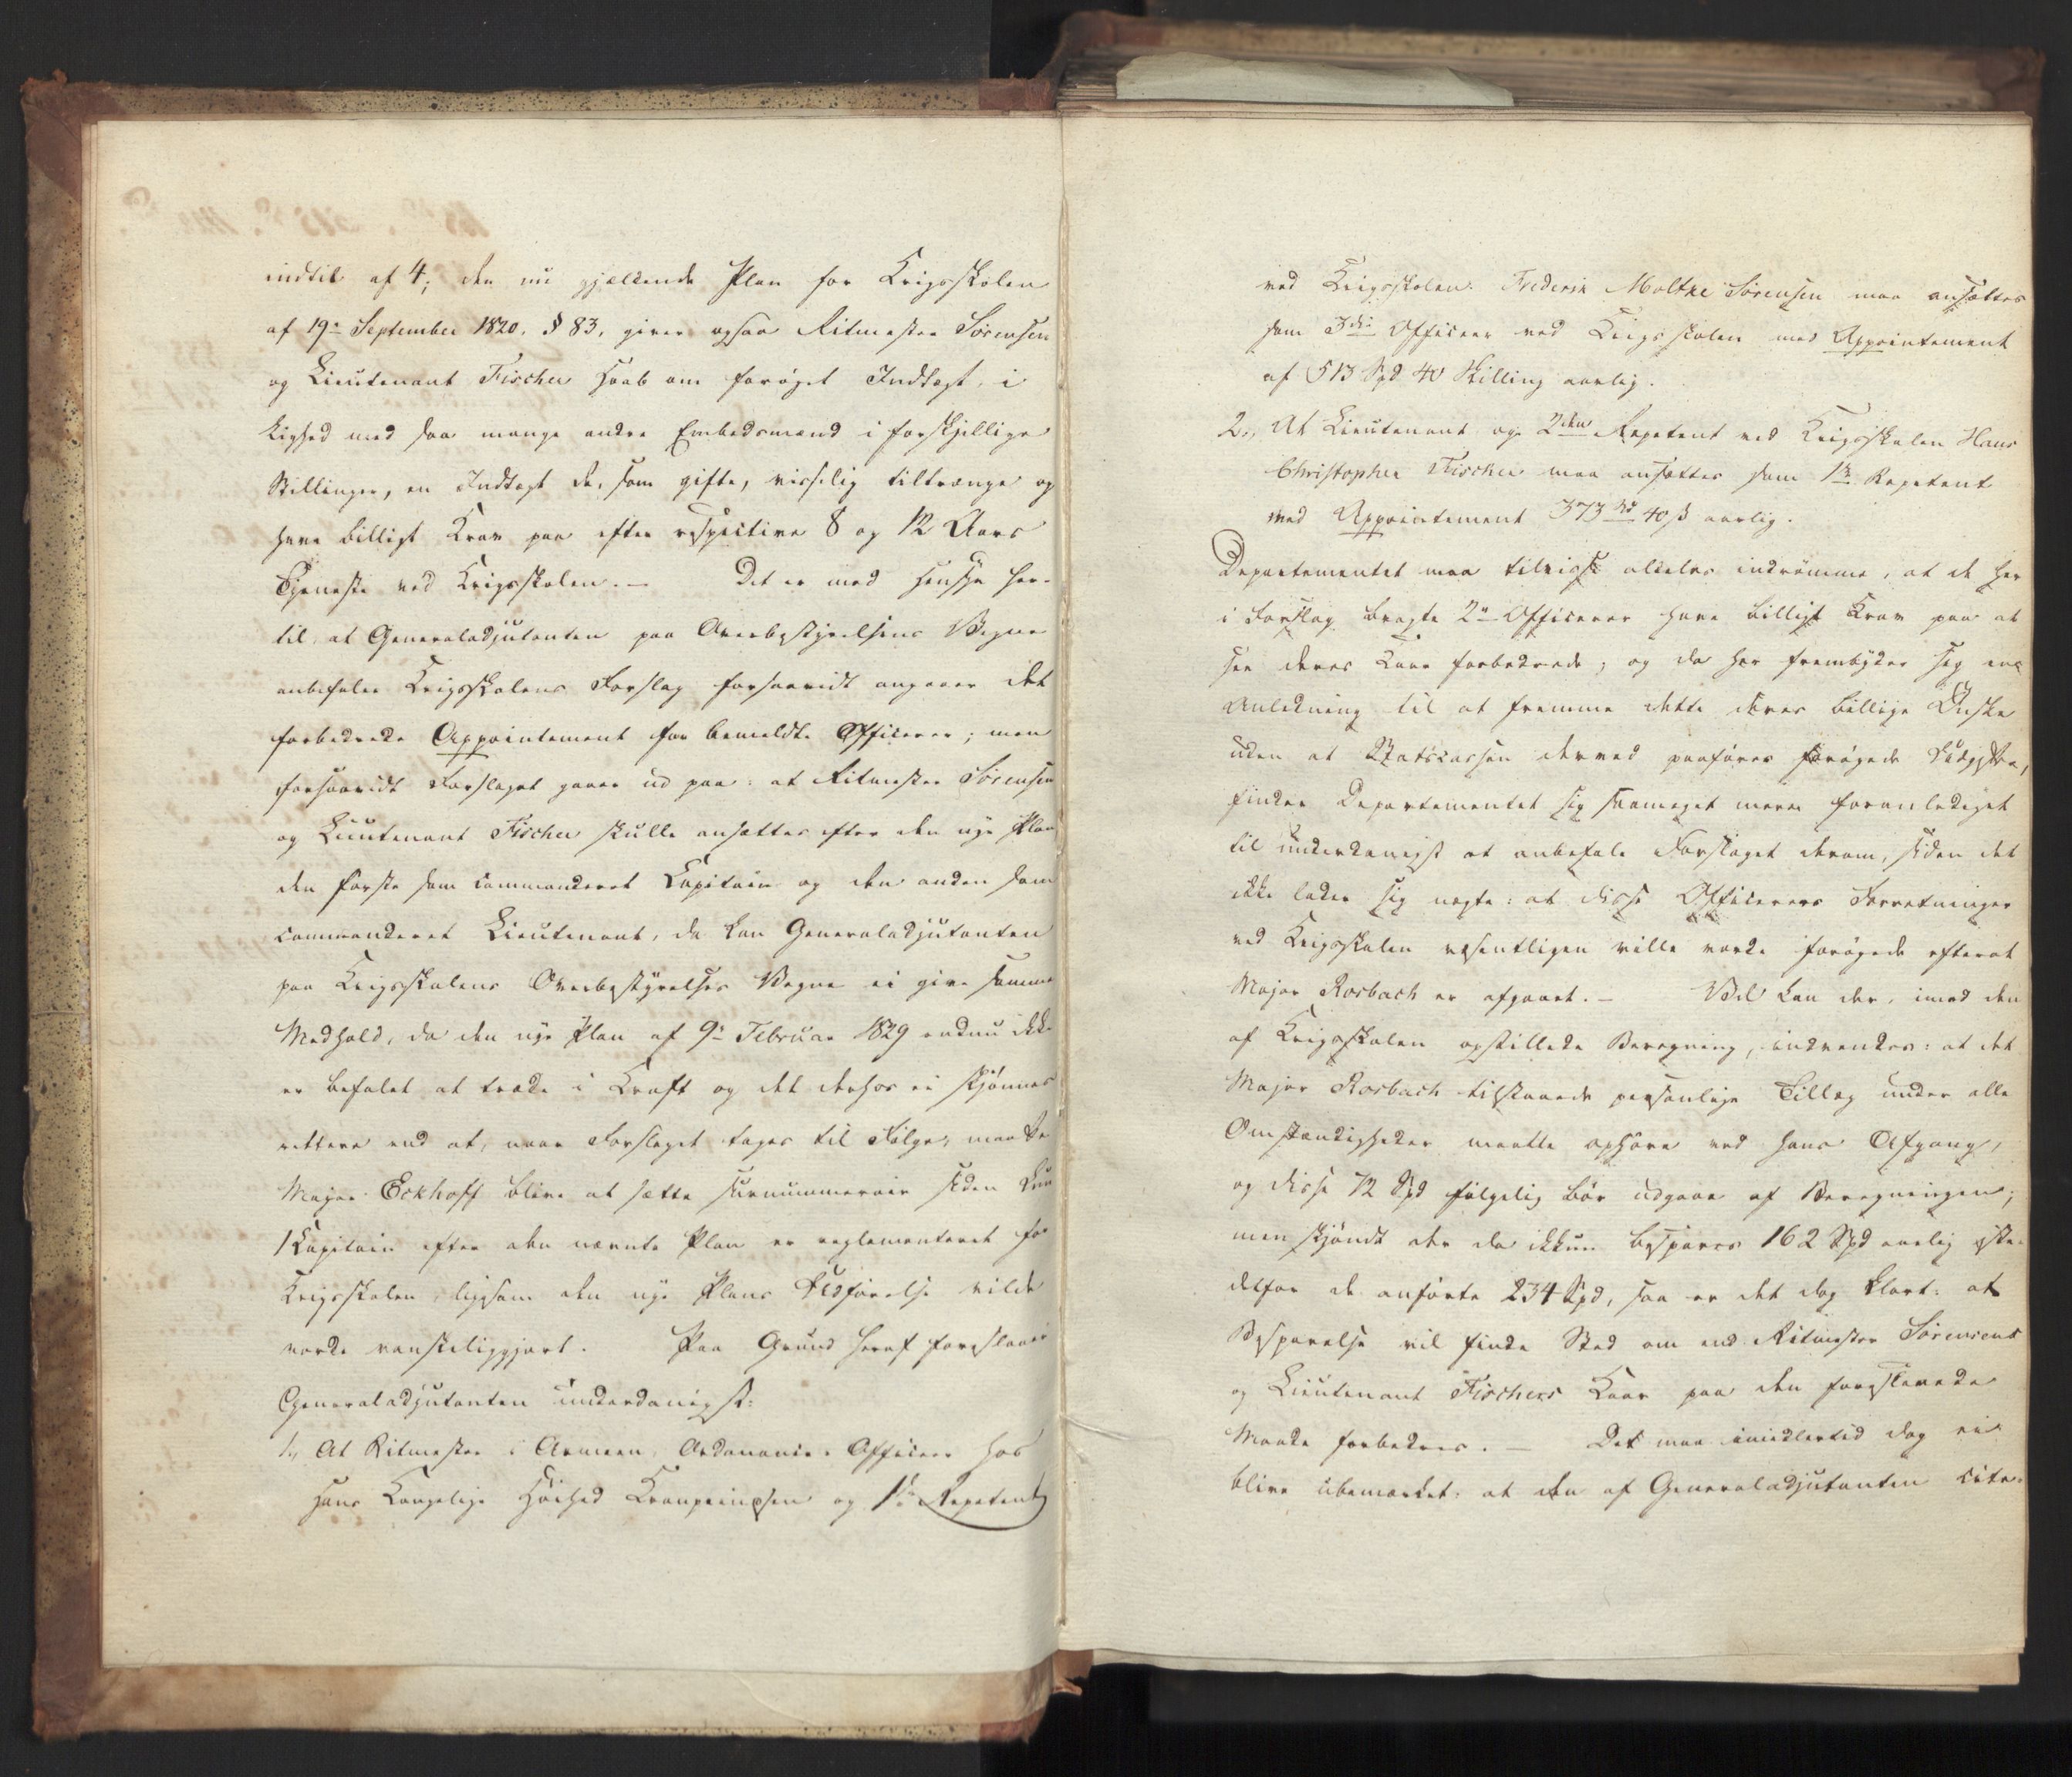 indtil af 4; den nu gjældende Plan for Krigsskolen
af 19de September 1820. § 83, giver ogsaa Ritmester Sørensen
og Lieutenant Fischer Haab om forøget Indtægt, i
Lighed med saa mange andre Embedsmænd i forskjellige
Stillinger, en Indtægt de, som gifte, visselig tiltrænge og
have billigt Krav paa efter respective 8 og 12 Aars
Tjeneste ved Krigsskolen. — Det er med Hensyn her-
til, at Generaladjutanten paa Overbestyrelsens Vegne
anbefaler Krigsskolens Forslag forsaavidt angaaer det
forbedrede Appointement for bemeldte Officerer; men
forsaavidt Forslaget gaaer ud paa: at Ritmester Sørensen
og Lieutenant Fischer skulle ansættes efter den nye Plan
den første som commanderet Capitain og den anden som
commanderet Lieutenant, da kan Generaladjutanten
paa Krigsskolens Overbestyrelses Vegne ei give samme
Medhold, da den nye Plan af 9de Februar 1829 endnu ikke
er befalet at træde i Kraft og det derhos ei skjønnes
rettere end at, naar Forslaget tages til Følge, maatte
Major Eckhoff blive at sætte surnummerair siden kun
1 Capitain efter den nævnte Plan er reglementeret for
Krigsskolen, ligesom den nye Plans Udførelse vilde
vorde vanskeliggjort. Paa Grund heraf foreslaaer
Generaladjutanten underdanigst:
1., At Ritmester i Armeen, Ordonance-Officeer hos
Hans Kongelige Høihed Kronprindsen og 1ste Repetent
ved Krigsskolen: Frederik Moltke Sørensen maa ansættes
som 3die Officeer ved Krigsskolen med Appointement
af 513 Spd 40 Skilling aarlig.
2., At Lieutenant og 2den Repetent ved Krigsskolen Hans
Christopher Fischer maa ansættes som 1ste Repetent
med Appointement 373 Spd 40 ß aarlig.
Departementet maa tilvisse aldeles indrømme, at de her
i Forslag bragte 2de Officerer have billigt Krav paa at
see deres Kaar forbedrede; og da her frembyder sig en
Anledning til at fremme dette deres billige Ønske
uden at Statscassen derved paaføres forøgede Udgifter,
finder Departementet sig saameget mere foranlediget
til underdanigst at anbefale Forslaget derom, siden det
ikke lader sig nægte: at disse Officerers Forretninger
ved Krigsskolen væsentligen ville vorde forøgede efterat
Major Rosbach er afgaaet. — Vel kan der, imod den
af Krigsskolen opstillede Beregning, indvendes: at det
Major Rosbach tilstaaede personlige Tillæg under alle
Omstændigheder maatte ophøre ved hans Afgang,
og disse 72 Spd følgelig bør udgaae af Beregningen;
men skjøndt der da ikkun bespares 162 Spd aarlig iste-
detfor de anførte 234 Spd, saa er det dog klart: at
Besparelse vil finde Sted om end Ritmester Sørensens
og Lieutenant Fischers Kaar paa den foreslaaede
Maade forbedres. — Det maa imidlertid dog ei
blive ubemærket: at den af Generaladjutanten cite-